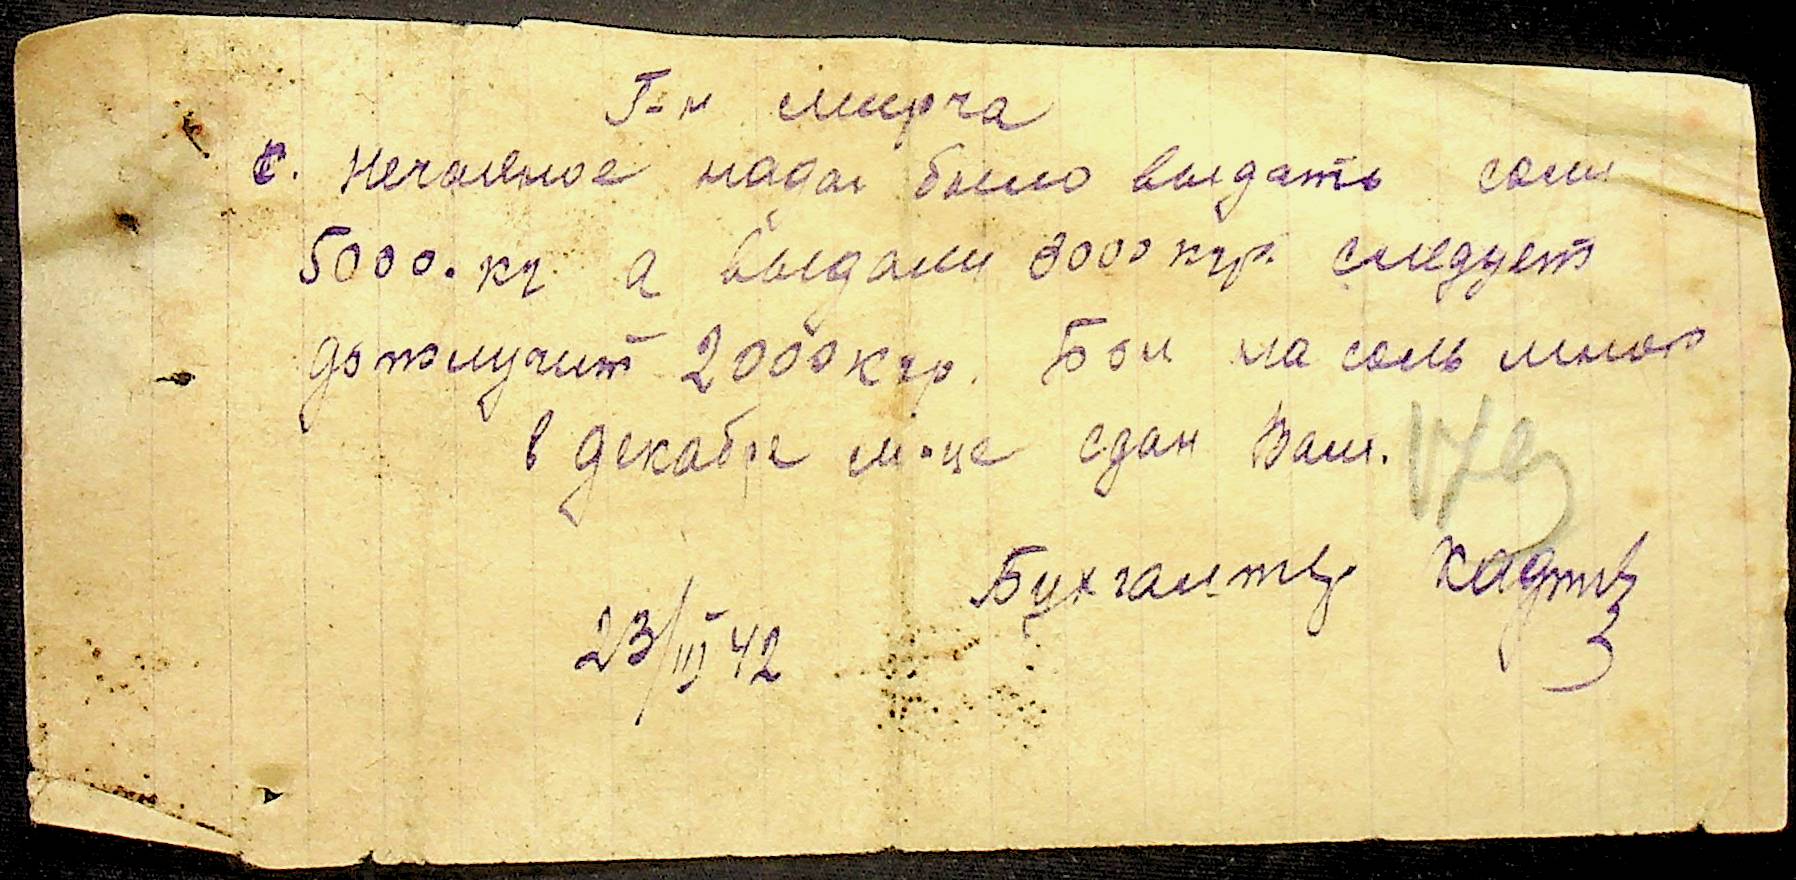 Г-н мирча
с. Нечаяное надо было выдать соли
5000. кг а выдали 3000 кгр. следует
дополучит 2000 кгр. Бон на соль мною
в декабре м-це сдан Вам.
Бухгалтер
23/III 42